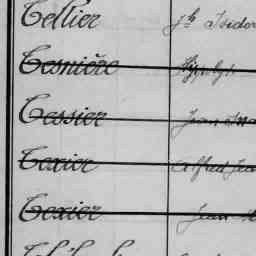 Tellier Jh Isidor
Tesnière Hippolyte
Tessier Jean
Texier Alfred Jea
Texier Jean